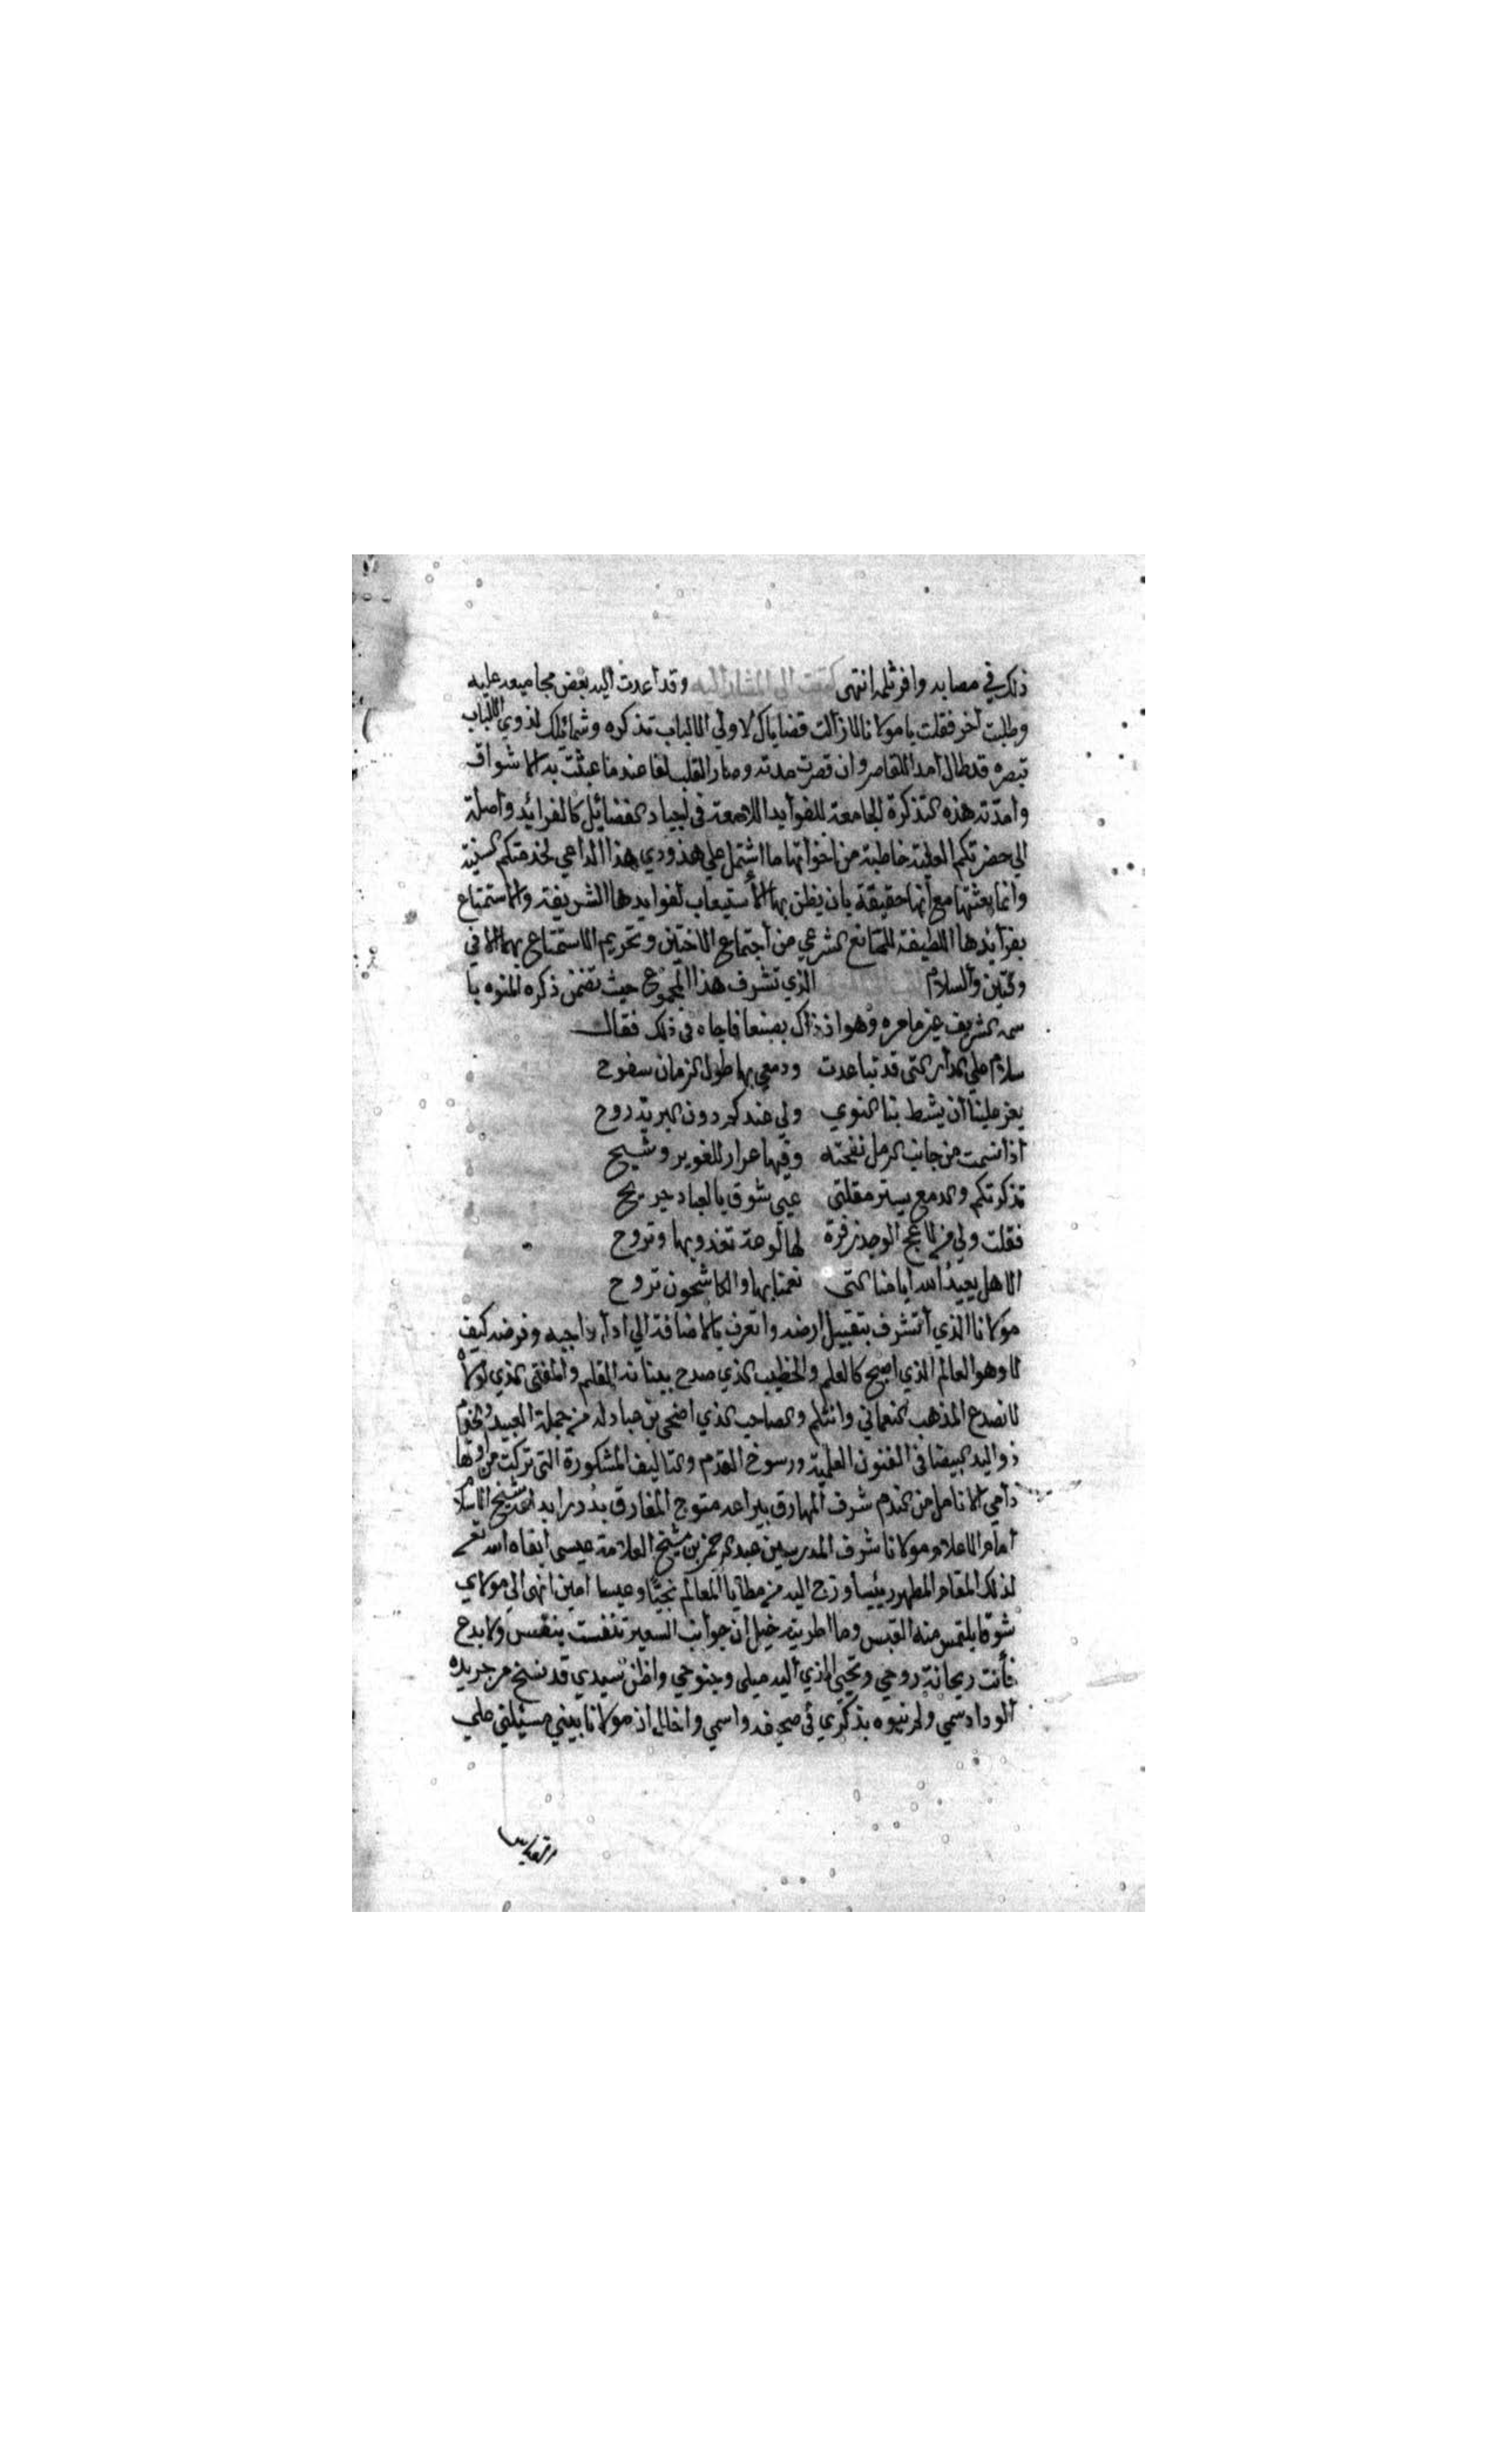 ذلك في مصابه وافر ثلمه انتهى كتبت الى المشار اليه وقد اعدت اليه بعض مجاميعه عليه
وطلبت آخر فقلت يا مولانا لا زالت قضاياك لاولي الالباب تذكره وشمائلك لذوي الالباب
تبصره قد طال امد التقاصر وان قصرت مدته وصار القلب لقا عندما عبثت به الاشواق
وامدته هذه التذكرة الجامعة للفوايد اللامعة في اجياد الفضائل كالفرائد واصلة
الى حضرتكم العلية خاطبة من اخواتها ما اشتمل علي هذودي هذا الداعي لخدمتكم السنية
وانما بعثتها مع انها حقيقة بان يظن بها الاستيعاب لفوايدها الشريفة والاستمتاع
بفرائدها اللطيفة للمانع الشرعي من اجتماع الاختين وتحريم الاستمتاع بهما الا في
وقتين والسلام الذي تشرف هذا المجموع حيث تضمن ذكره المنوه با
سمه الشريف غير ما مره وهو اذ ذاك بصنعا فاجاه في ذلك فقال
سلام علي الدار التى قد تباعدت ودمعي بها طول الزمان سفوح
يعز علينا ان يشط بنا النوي ولي عندكم دون البرية روح
اذا نسمت من جانب الرمل نفحته وفيها عرار للغوير وشيح
تذكرتكم والدمع يستر مقلتى شوق بالعباد جريح
فقلت ولي من لاعج الوجد زفرة لها لوعة تغدو بها وتروح
الا هل يعيد الله ايامنا التى نعمنا بها والكاشحون تروح
مولانا الذي أتشرف بتقبيل ارضه واتعرف بالاضافة الي اداء واجبه وفرضه كيف
لا وهو العالم الذي اصبح كالعلم والخطيب الذي صدح ببنانه القلم والمفتى الذي لولاه
لانصدع المذهب النعماني وانثلم والصاحب الذي اضحى بن عباد له من جملة العبيد والخدم
ذو اليد البيضا في الفنون العلمية ورسوخ القدم والتاليف المشكورة التى تركت من
دامي الانامل من الندم شرف المهارق بيراعه متوج المفارق بدرر ابداعه شيخ الاسلام
امام الاعلام مولانا شرف المدرسين عبد الرحمن بن شيخ العلامة عيسى ابقاه الله تعالى
لذلك المقام المطهر رئيسا وزج اليه من مطايا المعالم نجبًا وعيسا امين انهى الى مولاي
شوقا يلتمس منه القبس وما اطريته خيل ان جوانب السعير تنفست بنفس ولا بدع
فأنت ريحانة روحي ويحيى الذي اليه ميلى وجنوحي واظن سيدي قد نسخ من جريده
الوداد سمي ولم ينوه بذكري في صحيفة واسمي واخاله اذ مولانا علي
القياس